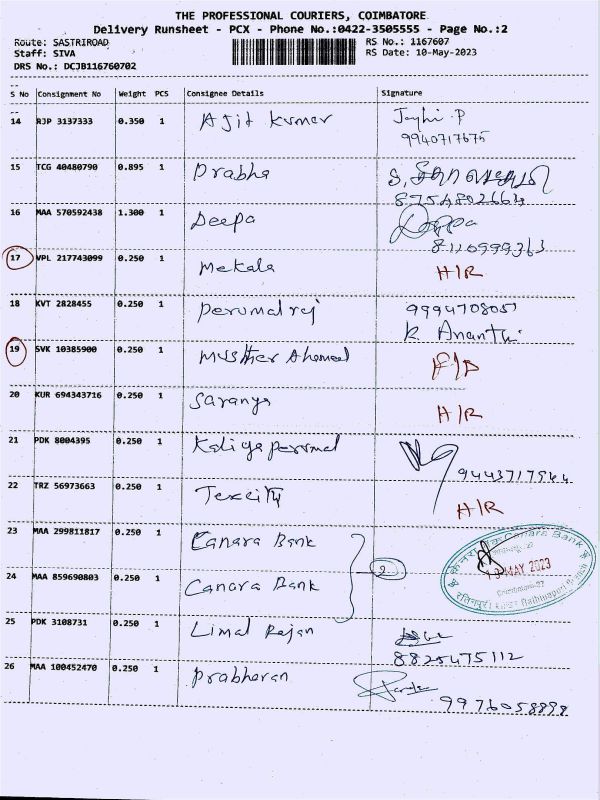 THE PROFESSIONAL COURIERS, COIMBATORE
Delivery Runsheet - PCX - Phone No.:0422-3505555 - Page No.:2
Route: SASTRIROAD
RS No.: 1167607
Staff: SIVA
RS Date: 10-May-2023
DRS No.: DCJB116760702
S No Consignment No Weight PCS Consignee Details Signature
14 RJP 3137333 0.350 1 Ajit kumar
9940717675
15 TCG 40480790 0.895 1 Prabha
8754802664
16 MAA 570592438 1.300 1 Deepa
8110999363
17 VPL 217743099 0.250 1 Mekala H/R
18 KVT 2828455 0.250 1 Perumal raj 9994708057
R. Ananthi
19 SVK 10385900 0.250 1
20 KUR 694343716 0.250 1 Saranya H/R
21 PDK 8004395 0.250 1 Kaliyaperumal
22 TRZ 56973663 0.250 1 H/R
23 MAA 299811817 0.250 1 Canara Bank
2
24 MAA 859690803 0.250 1 Canara Bank
Canara Bank
MAY 2023
25 PDK 3108731 0.250 1 Limal Rajan
8825475112
26 MAA 100452470 0.250 1 Prabharan
9976058898